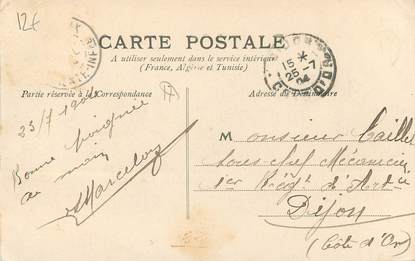 12€
CARTE POSTALE
A utiliser seulement dans le service intérieur
(France, Algérie et Tunisie)
Partie réservée à la Correspondance
Adresse du Destinataire
15 *
26 -7
COTE-D'OR
23/7
Bonne poignée
de main
Marcelou
Monsieur Caillet
sous chef Mécanicien
1er Régt d'Artie
Dijon
(Côte d'Or)